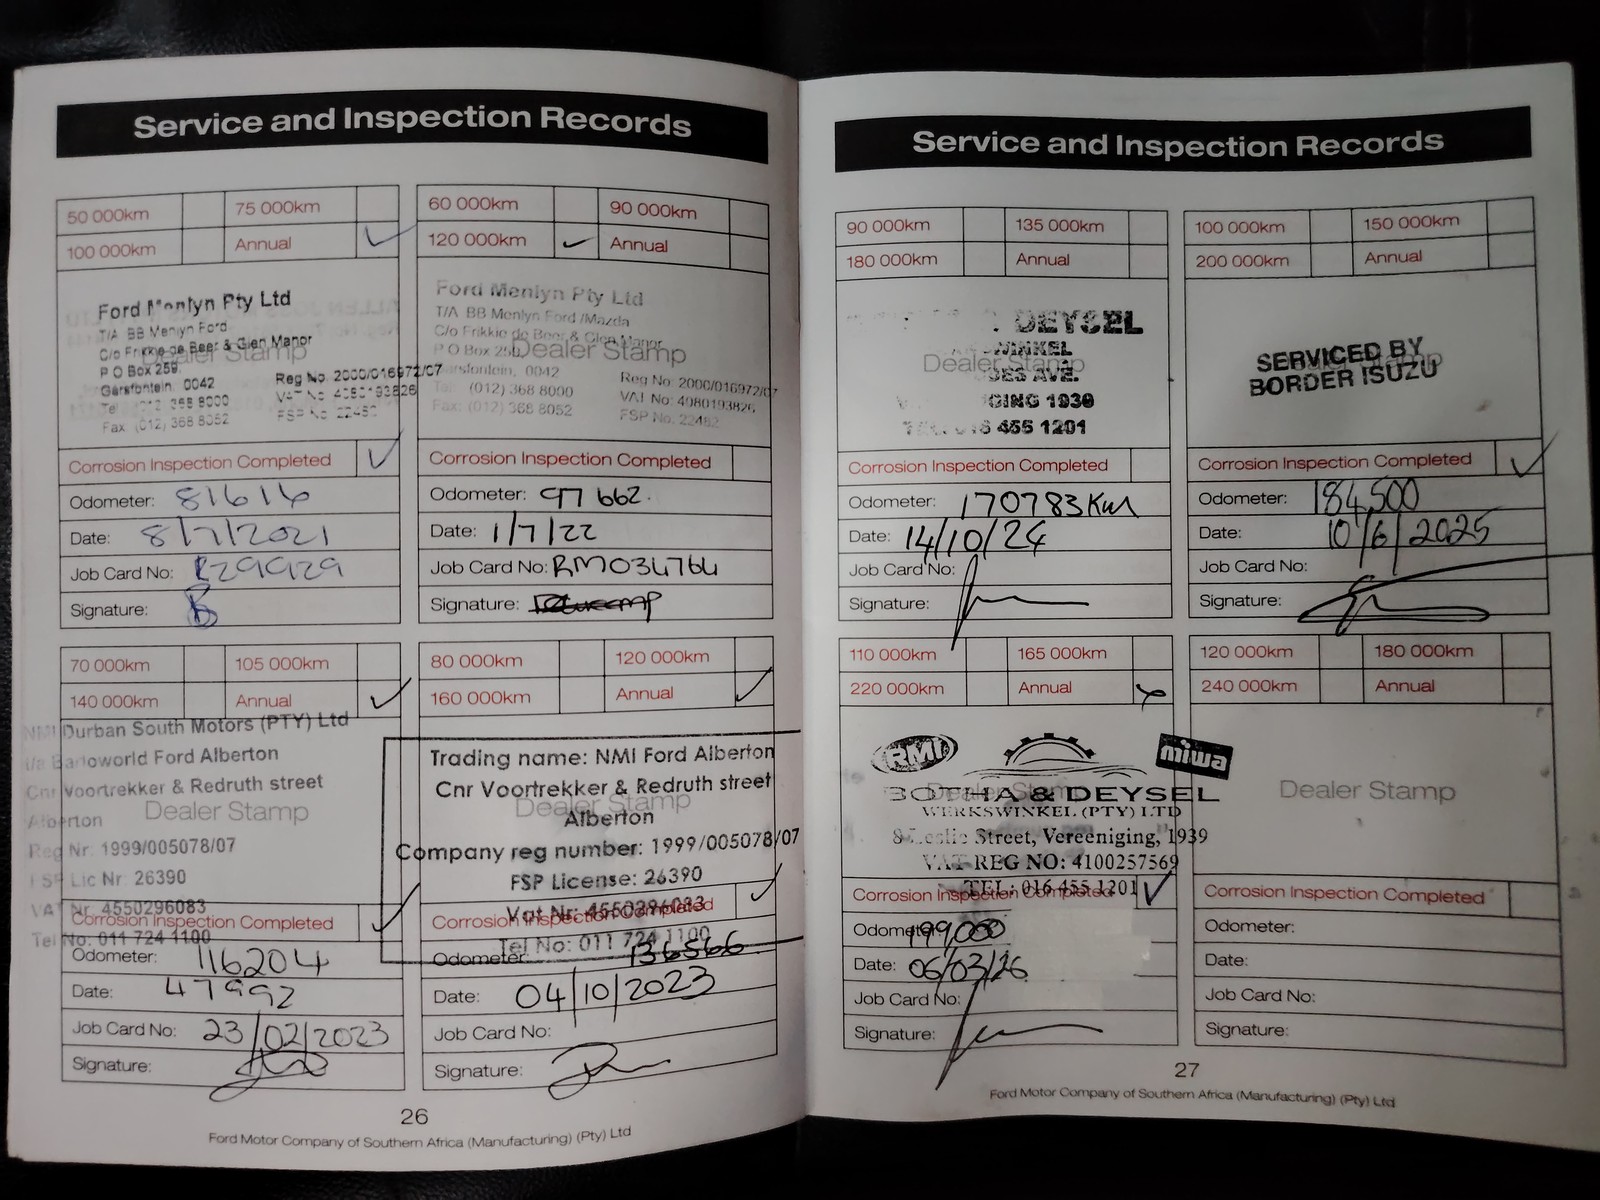 Service and Inspection Records
50 000km 75 000km
100 000km Annual
Ford Menlyn Pty Ltd
T/A BB Menlyn Ford
C/o Frikkie de Beer & Glen Manor
Dealer Stamp
P O Box 259
Garsfontein 0042 Reg No. 2000/016972/07
Tel 012 368 8000 VAT No 4080193826
Fax (012) 368 8052 FSP No 22482
Corrosion Inspection Completed
Odometer: 81616
Date: 8/7/2021
Job Card No: R29929
Signature:
60 000km 90 000km
120 000km Annual
Ford Menlyn Pty Ltd
T/A BB Menlyn Ford /Mazda
C/o Frikkie de Beer & Glen Manor
P O Box 259 Dealer Stamp
Garsfontein, 0042 Reg No: 2000/016972/07
Tel: (012) 368 8000 VAT No: 4080193826
Fax: (012) 368 8052 FSP No. 22482
Corrosion Inspection Completed
Odometer: 97662.
Date: 1/7/22
Job Card No: RM034764
Signature:
70 000km 105 000km
140 000km Annual
NMI Durban South Motors (PTY) Ltd
t/a Barloworld Ford Alberton
Cnr Voortrekker & Redruth street
Dealer Stamp
Alberton
Reg Nr: 1999/005078/07
FSP Lic Nr: 26390
VAT Nr: 4550296083
Corrosion Inspection Completed
Tel No: 011 724 1100
Odometer: 116204
Date: 47992
Job Card No: 23/02/2023
Signature:
80 000km 120 000km
160 000km Annual
Trading name: NMI Ford Alberton
Cnr Voortrekker & Redruth street
Dealer Stamp
Alberton
Company reg number: 1999/005078/07
FSP License: 26390
Vat Nr: 4550296083
Corrosion Inspection Completed
Tel No: 011 724 1100
Odometer: 136566
Date: 04/10/2023
Job Card No:
Signature:
26
Ford Motor Company of Southern Africa (Manufacturing) (Pty) Ltd
Service and Inspection Records
90 000km 135 000km
180 000km Annual
DEYSEL
Dealer Stamp
WINKEL
AVE.
1939
455 1201
Corrosion Inspection Completed
Odometer: 170783 Km
Date: 14/10/24
Job Card No:
Signature:
100 000km 150 000km
200 000km Annual
SERVICED BY
Dealer Stamp
BORDER ISUZU
Corrosion Inspection Completed
Odometer: 184,500
Date: 10/6/2025
Job Card No:
Signature:
110 000km 165 000km
220 000km Annual
RMI
miwa
Dealer Stamp
BOTHA & DEYSEL
WERKSWINKEL (PTY) LTD
8 Leslie Street, Vereeniging, 1939
VAT REG NO: 4100257569
TEL: 016 455 1201
Corrosion Inspection Completed
Odometer: 199,000
Date: 06/03/26
Job Card No:
Signature:
120 000km 180 000km
240 000km Annual
Dealer Stamp
Corrosion Inspection Completed
Odometer:
Date:
Job Card No:
Signature:
27
Ford Motor Company of Southern Africa (Manufacturing) (Pty) Ltd